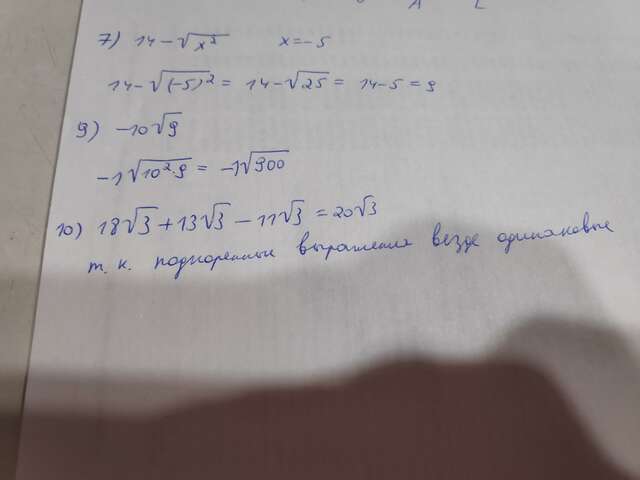 7) 14 - √x² x = -5
14 - √(-5)² = 14 - √25 = 14 - 5 = 9
9) -10√9
-1√10²·9 = -1√900
10) 18√3 + 13√3 - 11√3 = 20√3
т.к. подкоренные выражения везде одинаковые